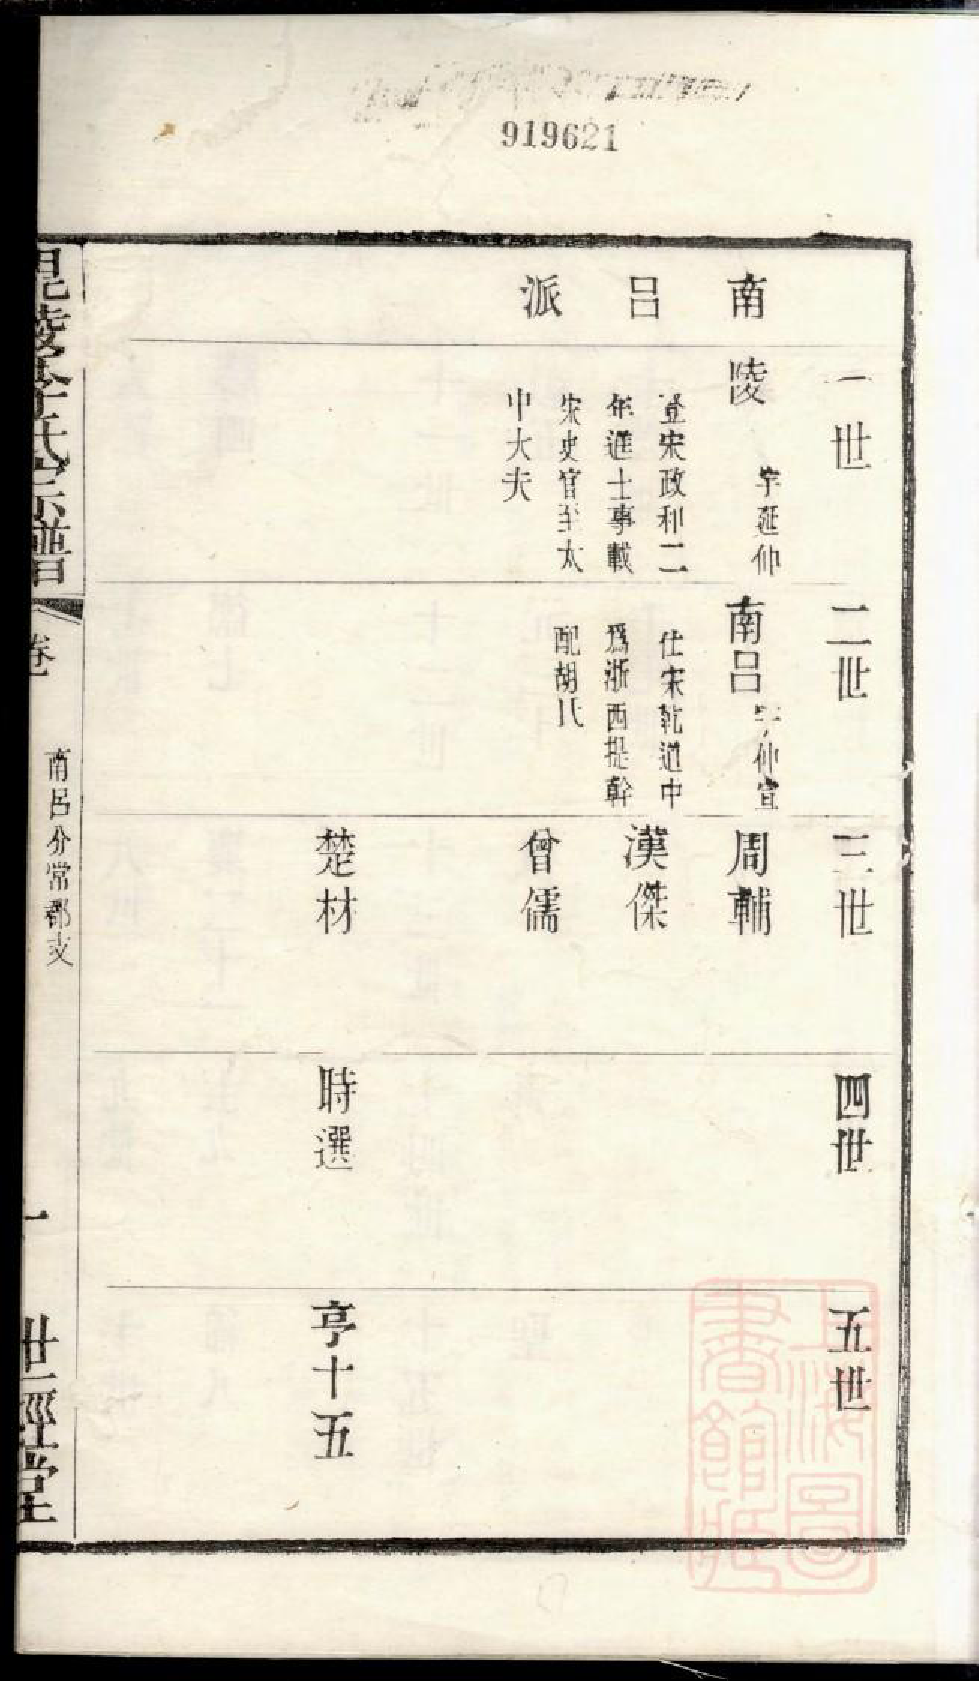 919621
南呂派
一世
陵
字延仲
登宋政和二
年進士事載
宋史官至太
中大夫
二世
南呂
字仲宣
仕宋乾道中
爲浙西提幹
配胡氏
三世
周輔
漢傑
曾儒
楚材
四世
時選
五世
亨十五
毘陵李氏宗譜
卷
南呂分常郡支
一
世經堂
上海圖書館藏